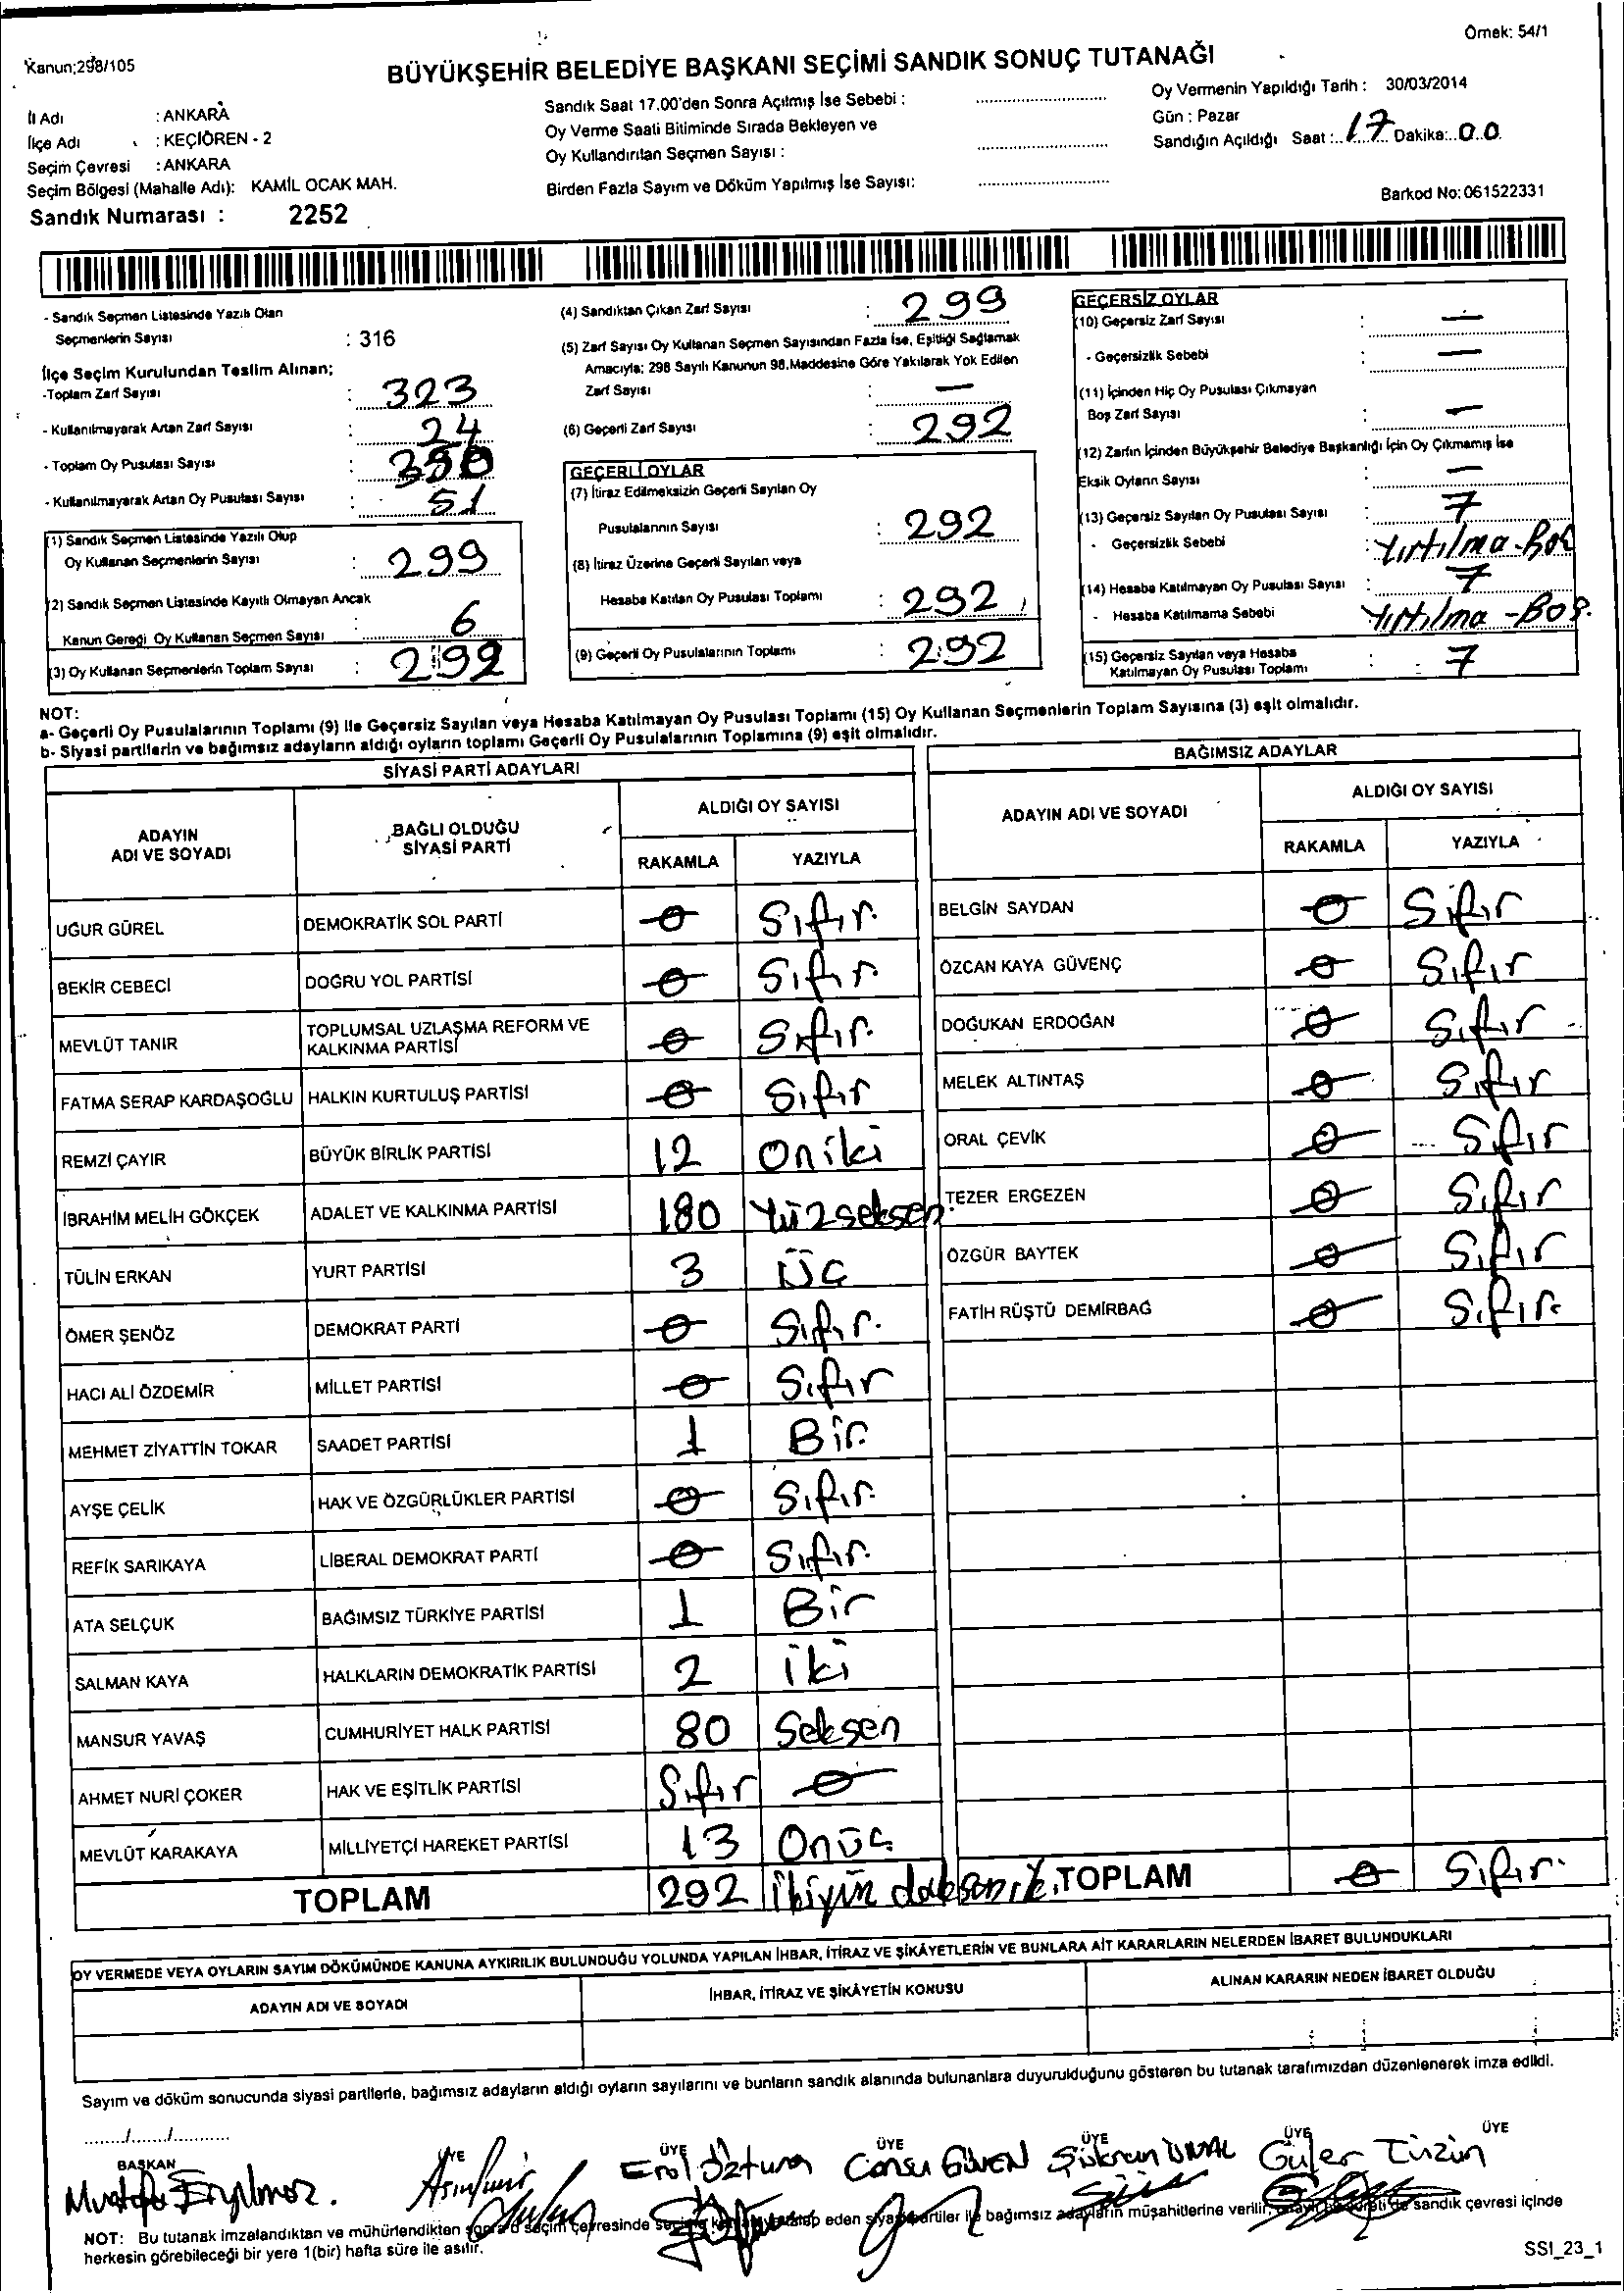 Örnek: 54/1
Kanun:298/105
BÜYÜKŞEHİR BELEDİYE BAŞKANI SEÇİMİ SANDIK SONUÇ TUTANAĞI
İl Adı : ANKARA
İlçe Adı : KEÇİÖREN - 2
Seçim Çevresi : ANKARA
Seçim Bölgesi (Mahalle Adı): KAMİL OCAK MAH.
Sandık Numarası : 2252
Sandık Saat 17.00'den Sonra Açılmış İse Sebebi :
Oy Verme Saati Bitiminde Sırada Bekleyen ve
Oy Kullandırılan Seçmen Sayısı :
Birden Fazla Sayım ve Döküm Yapılmış İse Sayısı:
Oy Vermenin Yapıldığı Tarih : 30/03/2014
Gün : Pazar
Sandığın Açıldığı Saat : 17 Dakika: 00
Barkod No: 061522331
- Sandık Seçmen Listesinde Yazılı Olan
Seçmenlerin Sayısı : 316
İlçe Seçim Kurulundan Teslim Alınan;
-Toplam Zarf Sayısı : 323
- Kullanılmayarak Artan Zarf Sayısı : 24
- Toplam Oy Pusulası Sayısı : 350
- Kullanılmayarak Artan Oy Pusulası Sayısı : 51
(1) Sandık Seçmen Listesinde Yazılı Olup
Oy Kullanan Seçmenlerin Sayısı : 299
(2) Sandık Seçmen Listesinde Kayıtlı Olmayan Ancak
Kanun Gereği Oy Kullanan Seçmen Sayısı : 6
(3) Oy Kullanan Seçmenlerin Toplam Sayısı : 299
(4) Sandıktan Çıkan Zarf Sayısı : 299
(5) Zarf Sayısı Oy Kullanan Seçmen Sayısından Fazla İse, Eşitliği Sağlamak
Amacıyla; 298 Sayılı Kanunun 98.Maddesine Göre Yakılarak Yok Edilen
Zarf Sayısı : —
(6) Geçerli Zarf Sayısı : 292
GEÇERLİ OYLAR
(7) İtiraz Edilmeksizin Geçerli Sayılan Oy
Pusulalarının Sayısı : 292
(8) İtiraz Üzerine Geçerli Sayılan veya
Hesaba Katılan Oy Pusulası Toplamı : 292
(9) Geçerli Oy Pusulalarının Toplamı : 292
GEÇERSİZ OYLAR
(10) Geçersiz Zarf Sayısı : —
- Geçersizlik Sebebi : —
(11) İçinden Hiç Oy Pusulası Çıkmayan
Boş Zarf Sayısı : —
(12) Zarfın İçinden Büyükşehir Belediye Başkanlığı İçin Oy Çıkmamış İse
Eksik Oyların Sayısı : —
(13) Geçersiz Sayılan Oy Pusulası Sayısı : 7
- Geçersizlik Sebebi : Yırtılma-Boş
(14) Hesaba Katılmayan Oy Pusulası Sayısı : 7
- Hesaba Katılmama Sebebi Yırtılma-Boş.
(15) Geçersiz Sayılan veya Hesaba
Katılmayan Oy Pusulası Toplamı : 7
NOT:
a- Geçerli Oy Pusulalarının Toplamı (9) İle Geçersiz Sayılan veya Hesaba Katılmayan Oy Pusulası Toplamı (15) Oy Kullanan Seçmenlerin Toplam Sayısına (3) eşit olmalıdır.
b- Siyasi partilerin ve bağımsız adayların aldığı oyların toplamı Geçerli Oy Pusulalarının Toplamına (9) eşit olmalıdır.
SİYASİ PARTİ ADAYLARI
ADAYIN ADI VE SOYADI BAĞLI OLDUĞU SİYASİ PARTİ ALDIĞI OY SAYISI
RAKAMLA YAZIYLA
UĞUR GÜREL DEMOKRATİK SOL PARTİ 0 Sıfır.
BEKİR CEBECİ DOĞRU YOL PARTİSİ 0 Sıfır.
MEVLÜT TANIR TOPLUMSAL UZLAŞMA REFORM VE KALKINMA PARTİSİ 0 Sıfır.
FATMA SERAP KARDAŞOĞLU HALKIN KURTULUŞ PARTİSİ 0 Sıfır
REMZİ ÇAYIR BÜYÜK BİRLİK PARTİSİ 12 Oniki
İBRAHİM MELİH GÖKÇEK ADALET VE KALKINMA PARTİSİ 180 Yüzseksen.
TÜLİN ERKAN YURT PARTİSİ 3 Üç
ÖMER ŞENÖZ DEMOKRAT PARTİ 0 Sıfır.
HACI ALİ ÖZDEMİR MİLLET PARTİSİ 0 Sıfır
MEHMET ZİYATTİN TOKAR SAADET PARTİSİ 1 Bir.
AYŞE ÇELİK HAK VE ÖZGÜRLÜKLER PARTİSİ 0 Sıfır.
REFİK SARIKAYA LİBERAL DEMOKRAT PARTİ 0 Sıfır.
ATA SELÇUK BAĞIMSIZ TÜRKİYE PARTİSİ 1 Bir
SALMAN KAYA HALKLARIN DEMOKRATİK PARTİSİ 2 İki
MANSUR YAVAŞ CUMHURİYET HALK PARTİSİ 80 Seksen
AHMET NURİ ÇOKER HAK VE EŞİTLİK PARTİSİ Sıfır 0
MEVLÜT KARAKAYA MİLLİYETÇİ HAREKET PARTİSİ 13 Onüç
TOPLAM 292
BAĞIMSIZ ADAYLAR
ADAYIN ADI VE SOYADI ALDIĞI OY SAYISI
RAKAMLA YAZIYLA
BELGİN SAYDAN 0 Sıfır
ÖZCAN KAYA GÜVENÇ 0 Sıfır
DOĞUKAN ERDOĞAN 0 Sıfır
MELEK ALTINTAŞ 0 Sıfır
ORAL ÇEVİK 0 Sıfır
TEZER ERGEZEN 0 Sıfır
ÖZGÜR BAYTEK 0 Sıfır
FATİH RÜŞTÜ DEMİRBAĞ 0 Sıfır.
TOPLAM 0 Sıfır.
OY VERMEDE VEYA OYLARIN SAYIM DÖKÜMÜNDE KANUNA AYKIRILIK BULUNDUĞU YOLUNDA YAPILAN İHBAR, İTİRAZ VE ŞİKÂYETLERİN VE BUNLARA AİT KARARLARIN NELERDEN İBARET BULUNDUKLARI
ADAYIN ADI VE SOYADI İHBAR, İTİRAZ VE ŞİKÂYETİN KONUSU ALINAN KARARIN NEDEN İBARET OLDUĞU
Sayım ve döküm sonucunda siyasi partilerle, bağımsız adayların aldığı oyların sayılarını ve bunların sandık alanında bulunanlara duyurulduğunu gösteren bu tutanak tarafımızdan düzenlenerek imza edildi.
......../......../............
BAŞKAN ÜYE ÜYE ÜYE ÜYE ÜYE ÜYE
Mustafa Eryılmaz. Erol Öztuna Cansu GÜVEN Şükran ÜNAL Güler
NOT: Bu tutanak imzalandıktan ve mühürlendikten sonra o seçim çevresinde seçime eden siyasi partiler ile bağımsız adayların müşahitlerine verilir, sandık çevresi içinde
herkesin görebileceği bir yere 1(bir) hafta süre ile asılır.
SSI_23_1